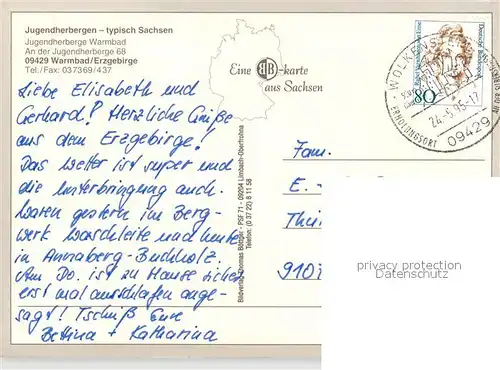 Jugendherbergen – typisch Sachsen
Jugendherberge Warmbad
An der Jugendherberge 68
09429 Warmbad/Erzgebirge
Tel./Fax: 037369/437
Liebe Elisabeth und
Gerhard! Herzliche Grüße
aus dem Erzgebirge!
Das Wetter ist super und
die Unterbringung auch.
Waren gestern im Berg-
werk Waschleite und heute
in Annaberg-Buchholz.
Am Do. ist zu Hause sicher
erst mal ausschlafen ange-
sagt! Tschüß Eure
Bettina + Katharina
Eine BB-karte
aus Sachsen
Bildverlag Thomas Böttger - PSF 71 - 09204 Limbach-Oberfrohna
Telefon: (0 37 22) 8 11 58
Deutsche Bundespost
80
WOLKENS
24.-5.95-17
ERHOLUNGSORT
09429
Fam.
E. -
Thü
9107
privacy protection
Datenschutz